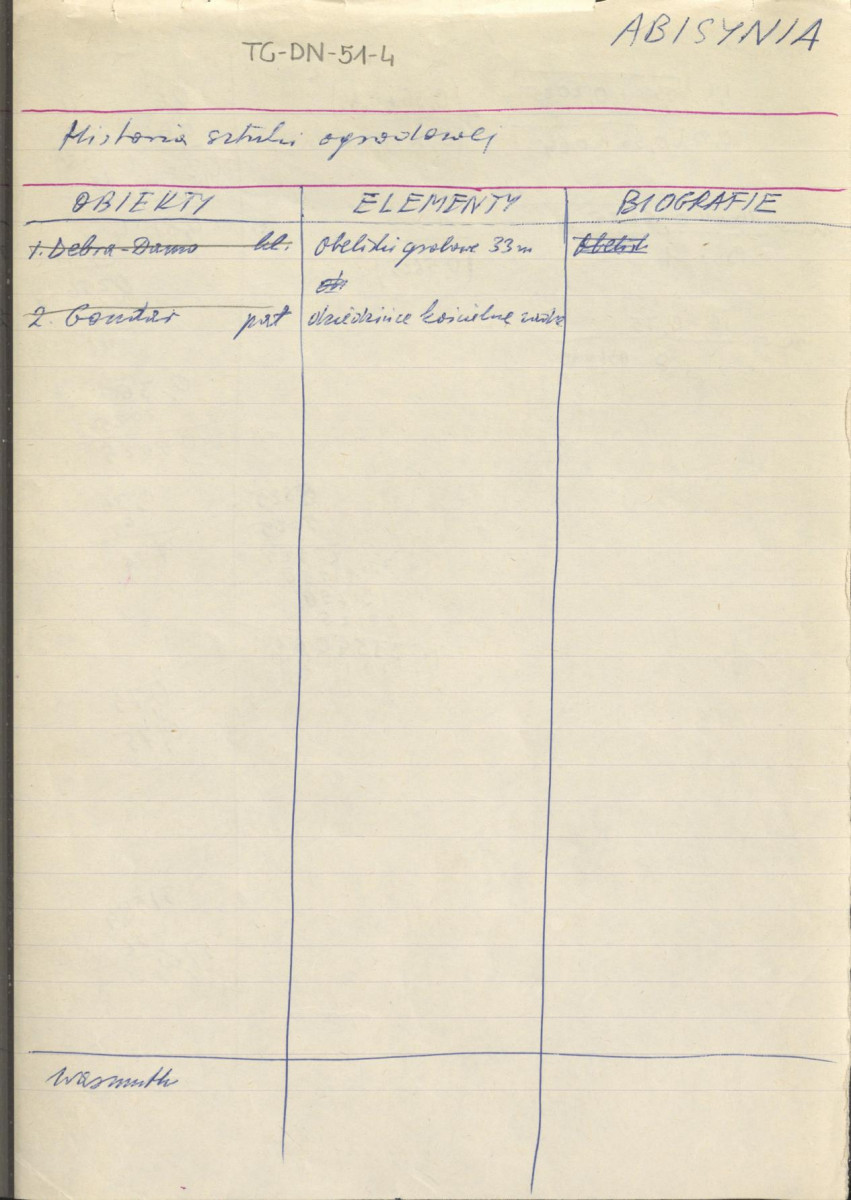 ABISYNIA
TG-DN-51-4
Historia sztuki ogrodowej
OBIEKTY ELEMENTY BIOGRAFIE
1. Debra-Damo kl. Obeliski grobowe 33m Obelisk
2. Gondar pał dziedzińce kościelne
Wasmuth